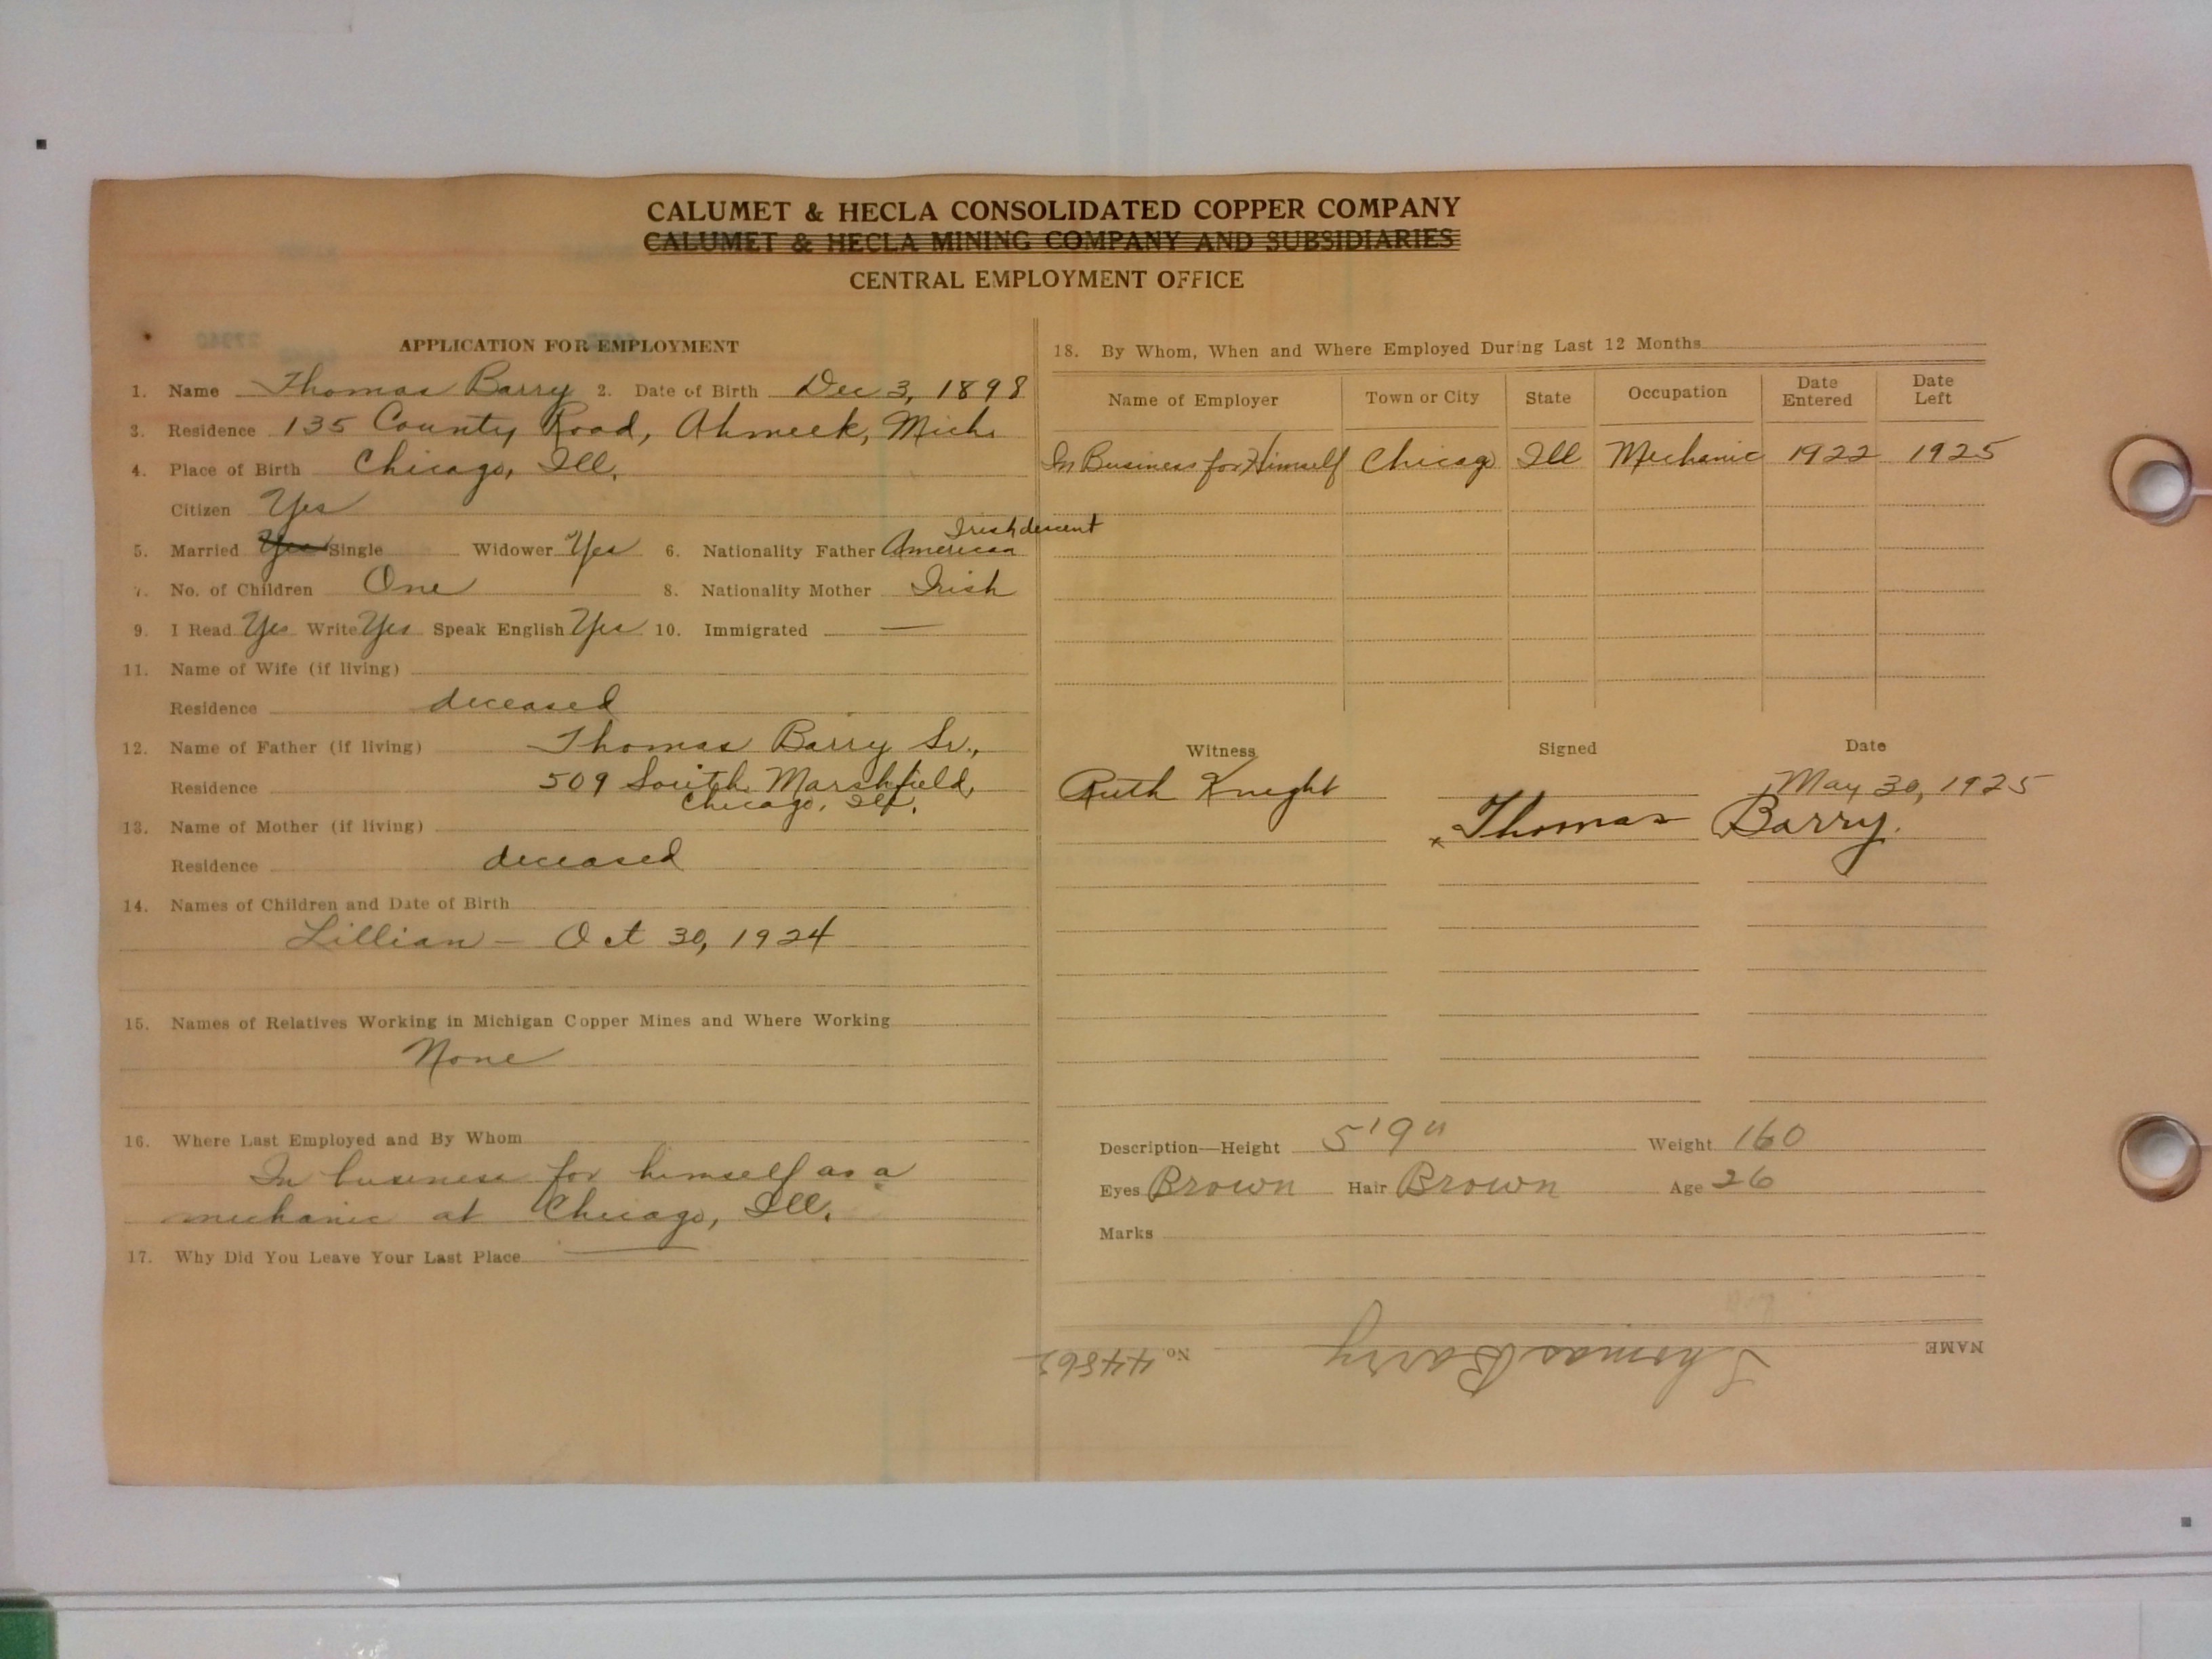 CALUMET & HECLA CONSOLIDATED COPPER COMPANY
CALUMET & HECLA MINING COMPANY AND SUBSIDIARIES
CENTRAL EMPLOYMENT OFFICE
APPLICATION FOR EMPLOYMENT
1. Name Thomas Barry 2. Date of Birth Dec 3, 1898
3. Residence 135 County Road, Ahmeek, Mich.
4. Place of Birth Chicago, Ill.
Citizen Yes
Irish descent
5. Married Yes Single Widower Yes 6. Nationality Father American
7. No. of Children One 8. Nationality Mother Irish
9. I Read Yes Write Yes Speak English Yes 10. Immigrated —
11. Name of Wife (if living)
Residence deceased
12. Name of Father (if living) Thomas Barry Sr.,
Residence 509 South Marshfield,
Chicago, Ill.
13. Name of Mother (if living)
Residence deceased
14. Names of Children and Date of Birth
Lillian - Oct 30, 1924
15. Names of Relatives Working in Michigan Copper Mines and Where Working
None
16. Where Last Employed and By Whom
In business for himself as a
mechanic at Chicago, Ill.
17. Why Did You Leave Your Last Place
18. By Whom, When and Where Employed During Last 12 Months
Name of Employer Town or City State Occupation Date Entered Date Left
In Business for Himself Chicago Ill Mechanic 1922 1925
Witness Signed Date
Ruth Knight May 30, 1925
x Thomas Barry.
Description—Height 5'9" Weight 160
Eyes Brown Hair Brown Age 26
Marks
NAME Thomas Barry No.